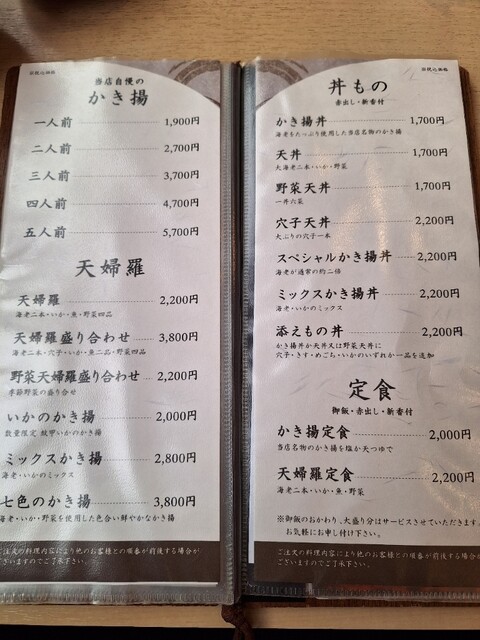 ※税込価格
当店自慢の
かき揚
一人前 1,900円
二人前 2,700円
三人前 3,700円
四人前 4,700円
五人前 5,700円
天婦羅
天婦羅 2,200円
海老二本・いか・魚・野菜四品
天婦羅盛り合わせ 3,800円
海老二本・穴子・いか・魚二品・野菜四品
野菜天婦羅盛り合わせ 2,200円
季節野菜の盛り合せ
いかのかき揚 2,000円
数量限定 紋甲いかのかき揚
ミックスかき揚 2,800円
海老・いかのミックス
七色のかき揚 3,800円
海老・いか・野菜を使用した色合い鮮やかなかき揚
ご注文の料理内容により他のお客様との順番が前後する場合が
ございますのでご了承下さい。
※税込価格
丼もの
赤出し・新香付
かき揚丼 1,700円
海老をたっぷり使用した当店名物のかき揚
天丼 1,700円
大海老二本・いか・野菜
野菜天丼 1,700円
一丼六菜
穴子天丼 2,200円
大ぶりの穴子一本
スペシャルかき揚丼 2,200円
海老が通常の約二倍
ミックスかき揚丼 2,200円
海老・いかのミックス
添えもの丼 2,200円
かき揚丼か天丼又は野菜天丼に
穴子・きす・めごち・いかのいずれか一品を追加
定食
御飯・赤出し・新香付
かき揚定食 2,000円
当店名物のかき揚を塩か天つゆで
天婦羅定食 2,200円
海老二本・いか・魚・野菜
※御飯のおかわり、大盛り分はサービスさせていただきます。
お気軽にお申し付け下さい。
ご注文の料理内容により他のお客様との順番が前後する場合が
ございますのでご了承下さい。